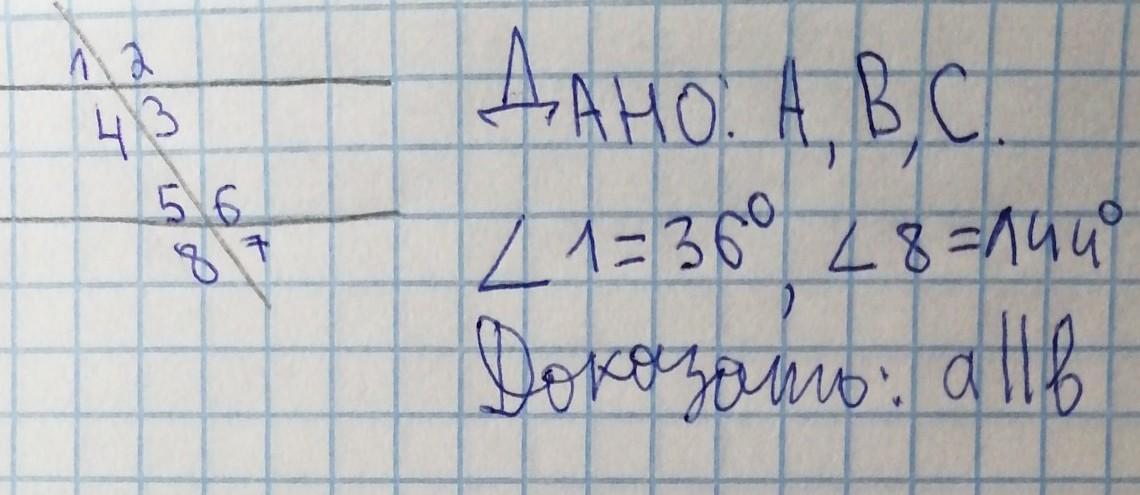 1 2
4 3
5 6
8 7
ДАНО: А, В, С.
∠1=36°, ∠8=144°
Доказать: a||b